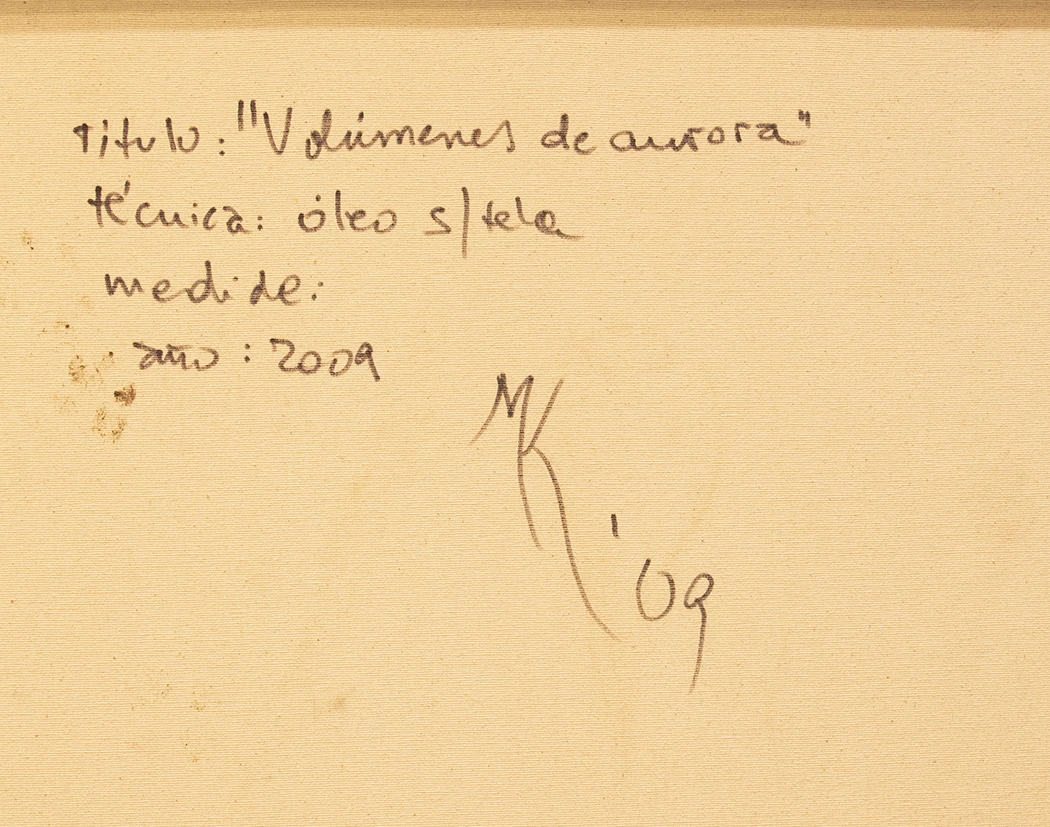 Titulo: "Volúmenes de aurora"
técnica: óleo s/tela
medide:
año: 2009
MK
'09